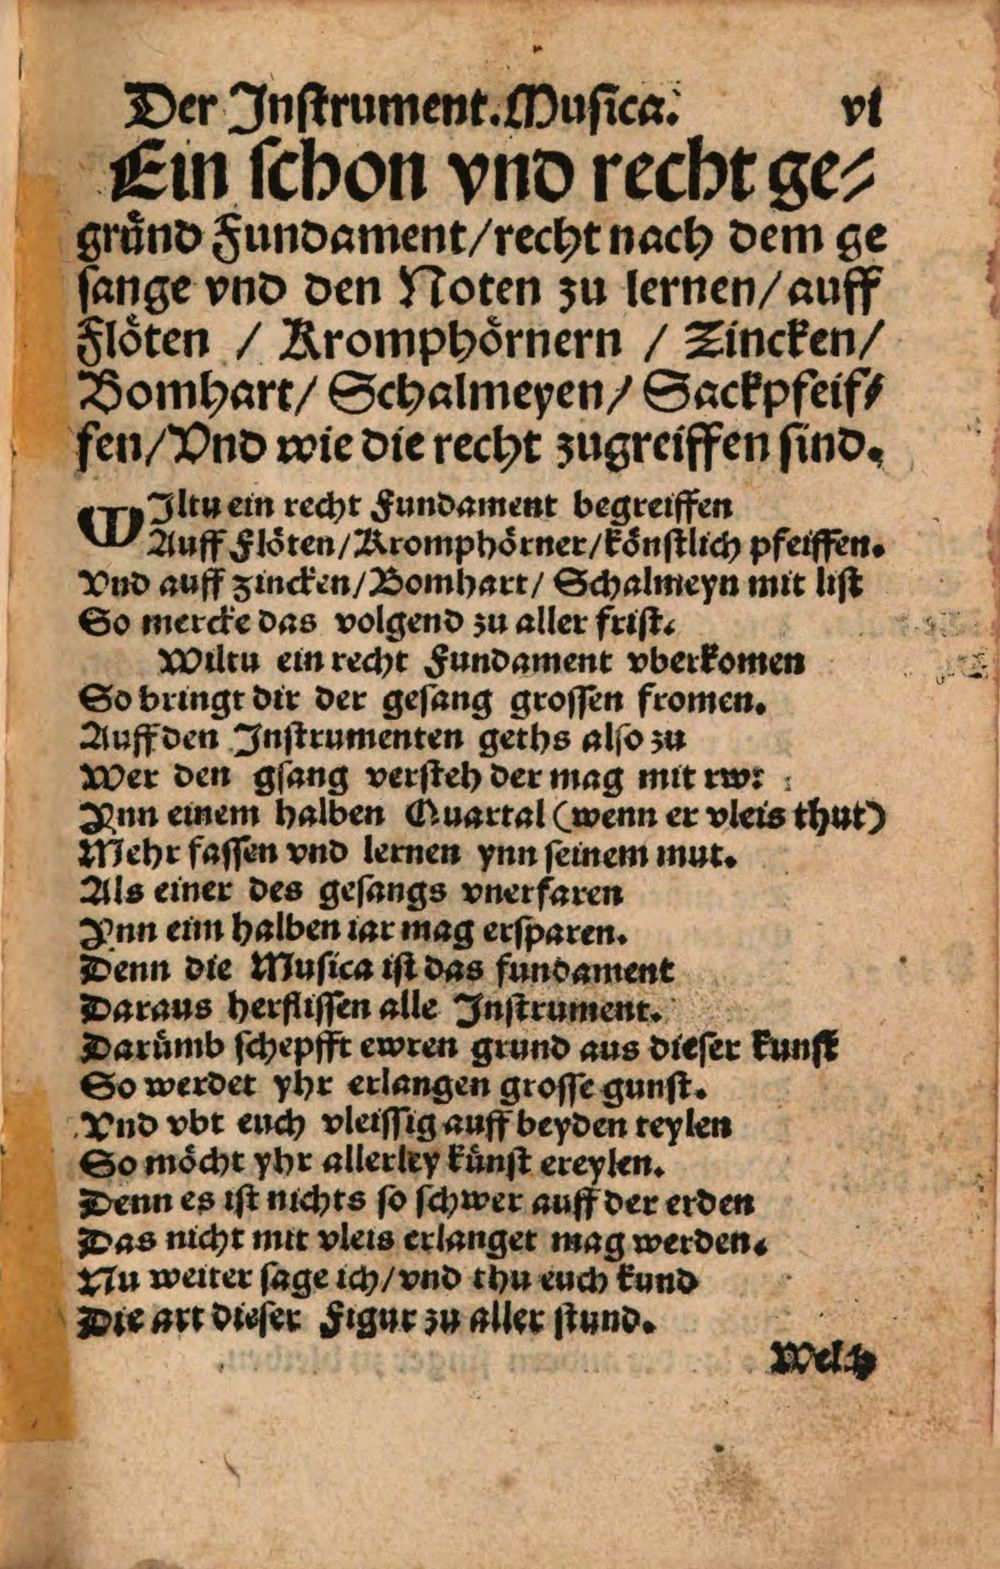 Der Instrument. Musica. vi
Ein schon vnd recht ge⸗
gründ Fundament/recht nach dem ge
sange vnd den Noten zu lernen/auff
Flöten / Kromphörnern / Zincken/
Bomhart/ Schalmeyen/ Sackpfeif⸗
fen/Vnd wie die recht zugreiffen sind.
WIltu ein recht Fundament begreiffen
Auff Flöten/Kromphörner/könstlich pfeiffen.
Vnd auff zincken/Bomhart/ Schalmeyn mit list
So mercke das volgend zu aller frist.
Wiltu ein recht Fundament vberkomen
So bringt dir der gesang grossen fromen.
Auff den Instrumenten geths also zu
Wer den gsang versteh der mag mit rw:
Ynn einem halben Quartal (wenn er vleis thut)
Mehr fassen vnd lernen ynn seinem mut.
Als einer des gesangs vnerfaren
Ynn eim halben iar mag ersparen.
Denn die Musica ist das fundament
Daraus herflissen alle Instrument.
Darümb schepfft ewren grund aus dieser kunst
So werdet yhr erlangen grosse gunst.
Vnd vbt euch vleissig auff beyden teylen
So möcht yhr allerley künst ereylen.
Denn es ist nichts so schwer auff der erden
Das nicht mit vleis erlanget mag werden.
Nu weiter sage ich/vnd thu euch kund
Die art dieser Figur zu aller stund.
Welch